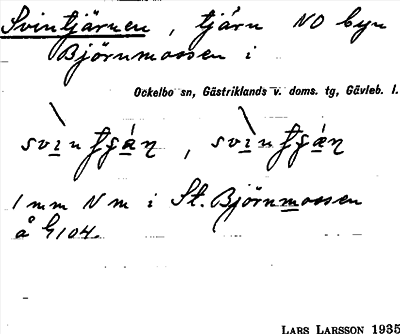 Svintjärnen, tjärn NO byn
Björnmossen i
Ockelbo sn, Gästriklands v. doms. tg, Gävleb. l.
1 mm N m i St. Björnmossen
å G104.
LARS LARSSON 1935